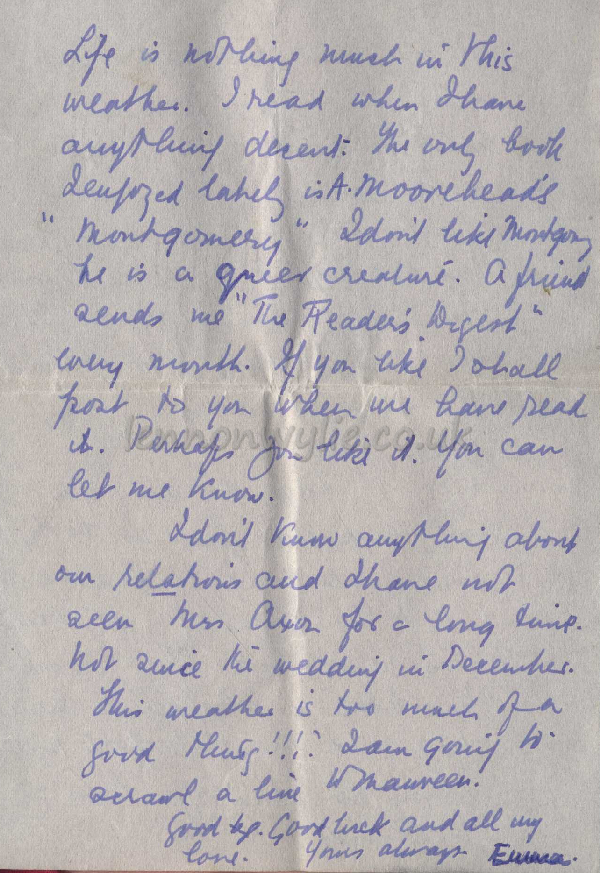 Life is nothing much in this
weather. I read when I have
anything decent. The only book
I enjoyed lately is A. Moorehead's
"Montgomery" I don't like Montgomery
he is a queer creature. A friend
sends me "The Reader's Digest"
every month. If you like I shall
post to you when we have read
it. Perhaps you like it. You can
lemonwylie.co.uk
let me know.
I don't know anything about
our relations and I have not
seen Mrs Axon for a long time.
Not since the wedding in December.
This weather is too much of a
good thing!!!! I am going to
scrawl a line to Maureen.
Good bye. Good luck and all my
love. Yours always Emma.